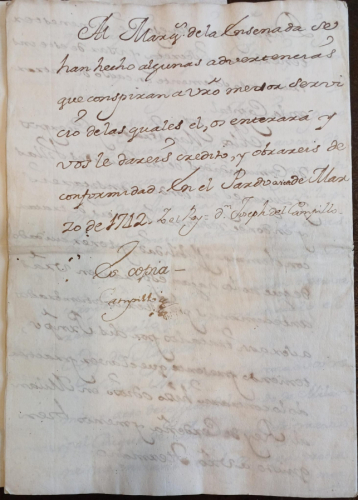 Al Marqs. de la Ensenada se
han hecho algunas advertencias
que conspiran a vro mexor servi
cio de las quales el, os enterará y
vos le dareis credito, y obrareis de
conformidad. En el Pardo a de Mar
20 de 1712. Yo el Rey. Dn. Joseph del Campillo.
Es copia
Campillo